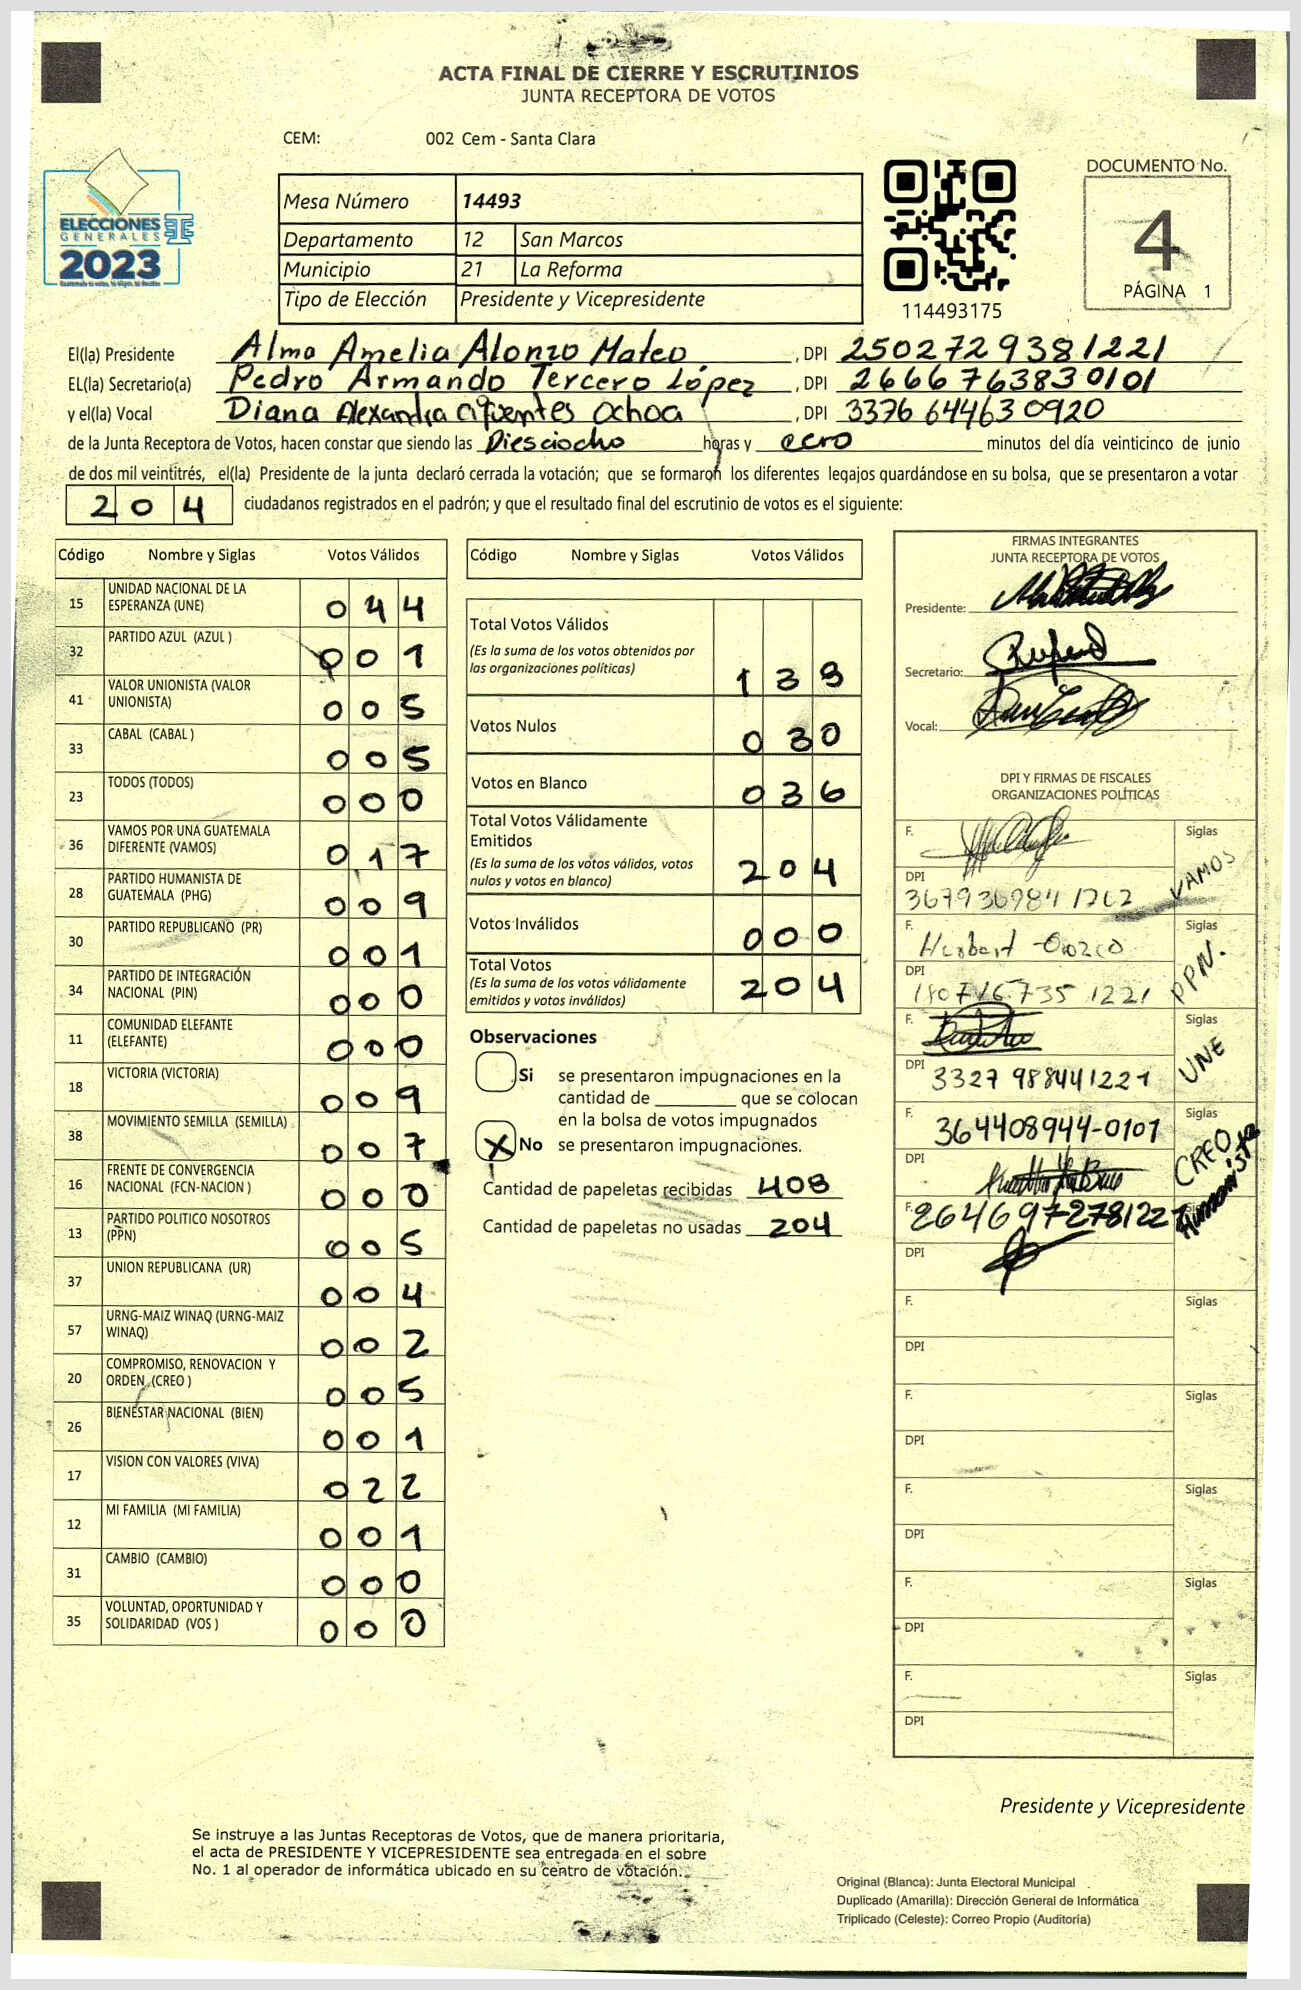 ACTA FINAL DE CIERRE Y ESCRUTINIOS
JUNTA RECEPTORA DE VOTOS
CEM: 002 Cem - Santa Clara
ELECCIONES
GENERALES
2023
Mesa Número 14493
Departamento 12 San Marcos
Municipio 21 La Reforma
Tipo de Elección Presidente y Vicepresidente
114493175
DOCUMENTO No.
4
PÁGINA 1
El(la) Presidente Alma Amelia Alonzo Mateo , DPI 2502729381221
EL(la) Secretario(a) Pedro Armando Tercero López , DPI 2666763830101
y el(la) Vocal Diana Alexandra cifuentes ochoa , DPI 3376 64463 0920
de la Junta Receptora de Votos, hacen constar que siendo las Diesciocho horas y cero minutos del día veinticinco de junio
de dos mil veintitrés, el(la) Presidente de la junta declaró cerrada la votación; que se formaron los diferentes legajos quardándose en su bolsa, que se presentaron a votar
204 ciudadanos registrados en el padrón; y que el resultado final del escrutinio de votos es el siguiente:
Código Nombre y Siglas Votos Válidos
15 UNIDAD NACIONAL DE LA
ESPERANZA (UNE) 044
32 PARTIDO AZUL (AZUL ) 001
41 VALOR UNIONISTA (VALOR
UNIONISTA) 005
33 CABAL (CABAL ) 005
23 TODOS (TODOS) 000
36 VAMOS POR UNA GUATEMALA
DIFERENTE (VAMOS) 017
28 PARTIDO HUMANISTA DE
GUATEMALA (PHG) 009
30 PARTIDO REPUBLICANO (PR) 001
34 PARTIDO DE INTEGRACIÓN
NACIONAL (PIN) 000
11 COMUNIDAD ELEFANTE
(ELEFANTE) 000
18 VICTORIA (VICTORIA) 009
38 MOVIMIENTO SEMILLA (SEMILLA) 007
16 FRENTE DE CONVERGENCIA
NACIONAL (FCN-NACION ) 000
13 PARTIDO POLITICO NOSOTROS
(PPN) 005
37 UNION REPUBLICANA (UR) 004
57 URNG-MAIZ WINAQ (URNG-MAIZ
WINAQ) 002
20 COMPROMISO, RENOVACION Y
ORDEN (CREO ) 005
26 BIENESTAR NACIONAL (BIEN) 001
17 VISION CON VALORES (VIVA) 022
12 MI FAMILIA (MI FAMILIA) 001
31 CAMBIO (CAMBIO) 000
35 VOLUNTAD, OPORTUNIDAD Y
SOLIDARIDAD (VOS ) 000
Código Nombre y Siglas Votos Válidos
Total Votos Válidos
(Es la suma de los votos obtenidos por
las organizaciones políticas) 138
Votos Nulos 030
Votos en Blanco 036
Total Votos Válidamente
Emitidos
(Es la suma de los votos válidos, votos
nulos y votos en blanco) 204
Votos Inválidos 000
Total Votos
(Es la suma de los votos válidamente
emitidos y votos inválidos) 204
Observaciones
Si se presentaron impugnaciones en la
cantidad de ________ que se colocan
en la bolsa de votos impugnados
X No se presentaron impugnaciones.
Cantidad de papeletas recibidas 408
Cantidad de papeletas no usadas 204
FIRMAS INTEGRANTES
JUNTA RECEPTORA DE VOTOS
Presidente:
Secretario:
Vocal:
DPI Y FIRMAS DE FISCALES
ORGANIZACIONES POLÍTICAS
F. Siglas
VAMOS
DPI
F. Herbert Orozco Siglas
PPN.
DPI
F. Siglas
UNE
DPI 3327 988441221
F. 364408944-0101 Siglas
CREO
DPI
F. 2646972781221
Humanista
DPI
F. Siglas
DPI
F. Siglas
DPI
F. Siglas
DPI
F. Siglas
DPI
F. Siglas
DPI
Presidente y Vicepresidente
Se instruye a las Juntas Receptoras de Votos, que de manera prioritaria,
el acta de PRESIDENTE Y VICEPRESIDENTE sea entregada en el sobre
No. 1 al operador de informática ubicado en su centro de votación.
Original (Blanca): Junta Electoral Municipal
Duplicado (Amarilla): Dirección General de Informática
Triplicado (Celeste): Correo Propio (Auditoría)